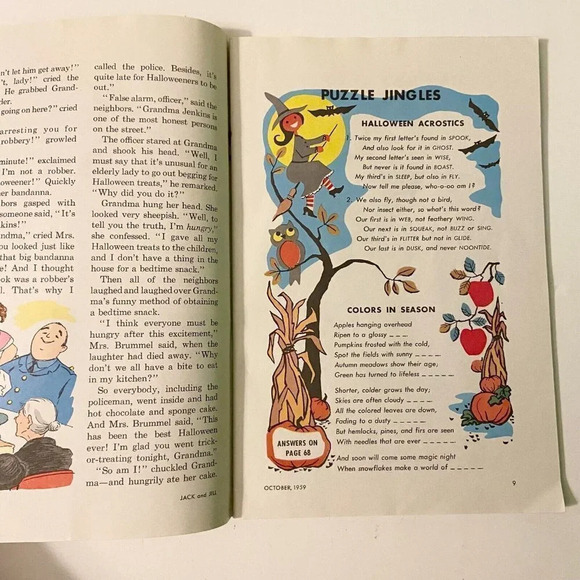 n't let him get away!"
't, lady!" cried the
He grabbed Grand-
der.
going on here?" cried
arresting you for
robbery!" growled
minute!" exclaimed
I'm not a robber.
oweener!" Quickly
er bandanna.
bors gasped with
someone said, "It's
kins!"
ndma," cried Mrs.
You looked just like
that big bandanna
e! And I thought
ook was a robber's
l. That's why I
called the police. Besides, it's
quite late for Halloweeners to be
out."
"False alarm, officer," said the
neighbors. "Grandma Jenkins is
one of the most honest persons
on the street."
The officer stared at Grandma
and shook his head. "Well, I
must say that it's unusual for an
elderly lady to go out begging for
Halloween treats," he remarked.
"Why did you do it?"
Grandma hung her head. She
looked very sheepish. "Well, to
tell you the truth, I'm hungry,"
she confessed. "I gave all my
Halloween treats to the children,
and I don't have a thing in the
house for a bedtime snack."
Then all of the neighbors
laughed and laughed over Grand-
ma's funny method of obtaining
a bedtime snack.
"I think everyone must be
hungry after this excitement,"
Mrs. Brummel said, when the
laughter had died away. "Why
don't we all have a bite to eat
in my kitchen?"
So everybody, including the
policeman, went inside and had
hot chocolate and sponge cake.
And Mrs. Brummel said, "This
has been the best Halloween
ever! I'm glad you went trick-
or-treating tonight, Grandma."
"So am I!" chuckled Grand-
ma—and hungrily ate her cake.
JACK and JILL
PUZZLE JINGLES
HALLOWEEN ACROSTICS
1. Twice my first letter's found in SPOOK,
And also look for it in GHOST.
My second letter's seen in WISE,
But never is it found in BOAST.
My third's in SLEEP, but also in FLY.
Now tell me please, who-o-oo am I?
2. We also fly, though not a bird,
Nor insect either, so what's this word?
Our first is in WEB, not feathery WING.
Our next is in SQUEAK, not BUZZ or SING.
Our third's in FLITTER but not in GLIDE.
Our last is in DUSK, and never NOONTIDE.
COLORS IN SEASON
Apples hanging overhead
Ripen to a glossy _ _ _.
Pumpkins frosted with the cold,
Spot the fields with sunny _ _ _ _.
Autumn meadows show their age;
Green has turned to lifeless _ _ _ _ _.
Shorter, colder grows the day;
Skies are often cloudy _ _ _ _.
All the colored leaves are down,
Fading to a dusty _ _ _ _ _.
But hemlocks, pines, and firs are seen
With needles that are ever _ _ _ _ _.
And soon will come some magic night
When snowflakes make a world of _ _ _ _ _.
ANSWERS ON
PAGE 68
OCTOBER, 1959
9